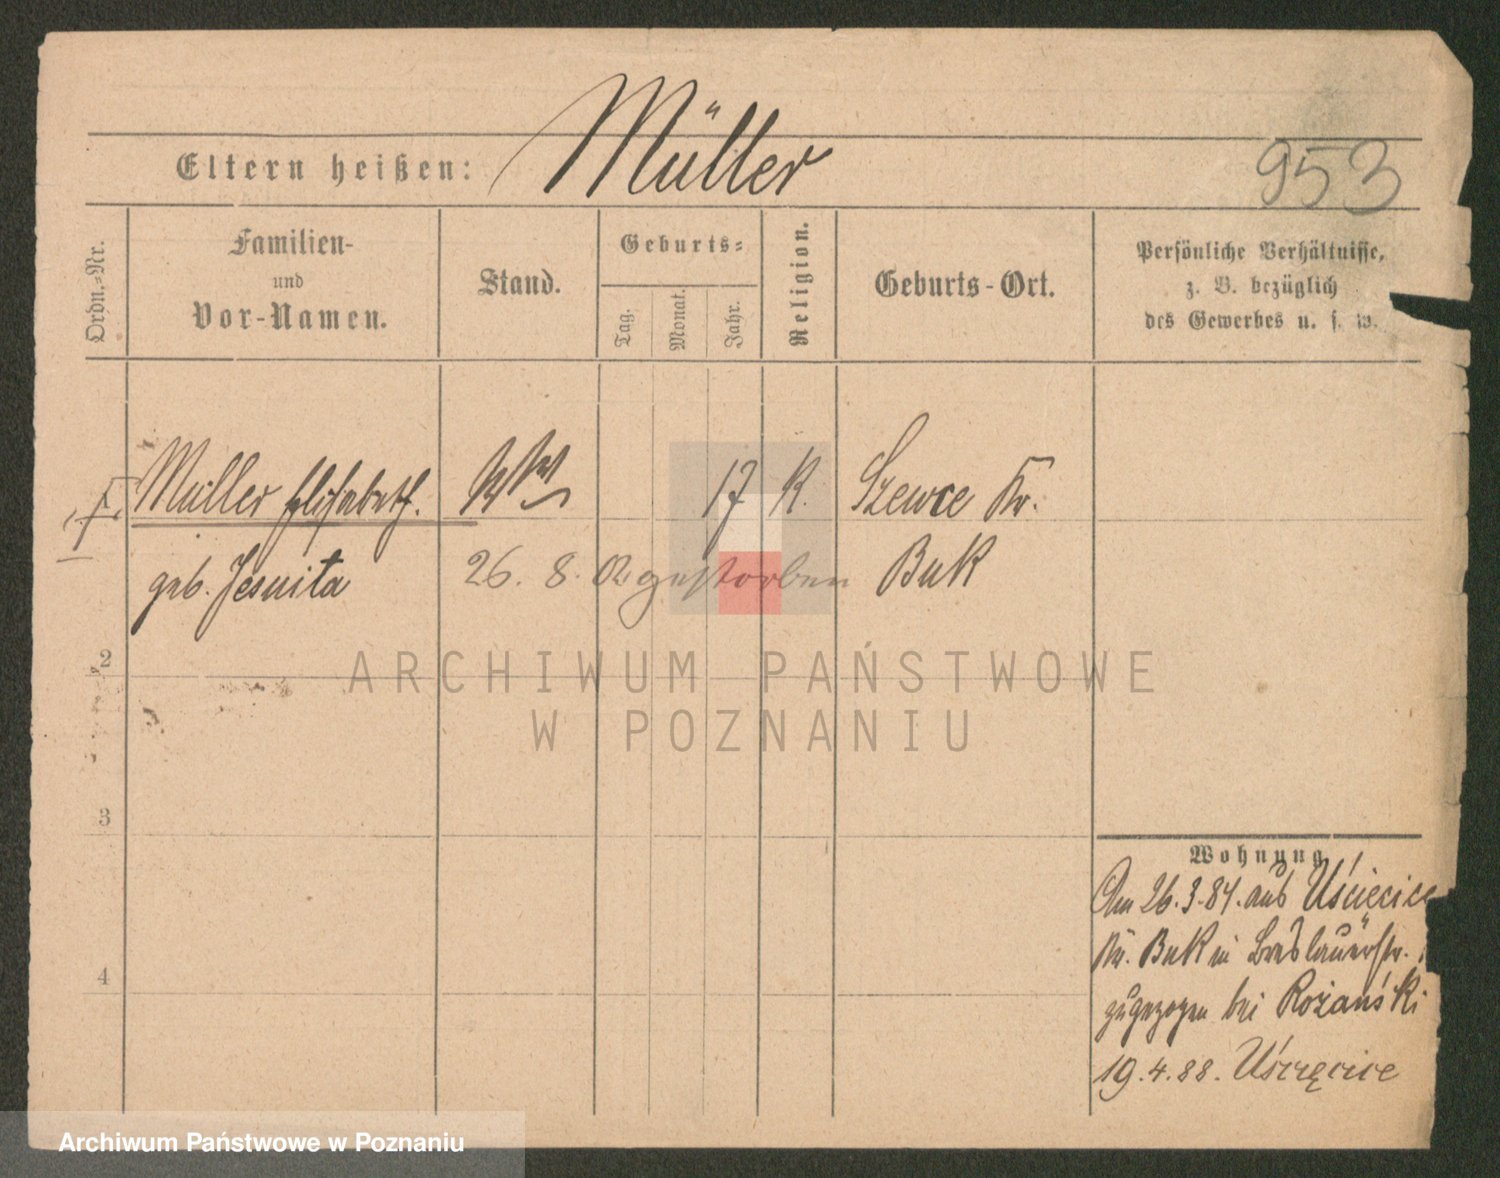 Müller
Eltern heißen:
953
Ordn.=Nr.
Familien-
und
Vor-Namen.
Stand.
Geburts=
Tag.
Monat.
Jahr.
Religion.
Geburts-Ort.
Persönliche Verhältnisse,
z. B. bezüglich
des Gewerbes u. s. w.
Müller Elisabeth. Ww 17 K. Szewce Kr.
geb. Jesuita 26. 8. gestorben Buk
2
3
4
Wohnung
Am 26.3.84. aus Uścięcice
Kr. Buk in Breslauerstr.
zugezogen bei Rożański
19.4.88. Uścięcice
ARCHIWUM PAŃSTWOWE
W POZNANIU
Archiwum Państwowe w Poznaniu